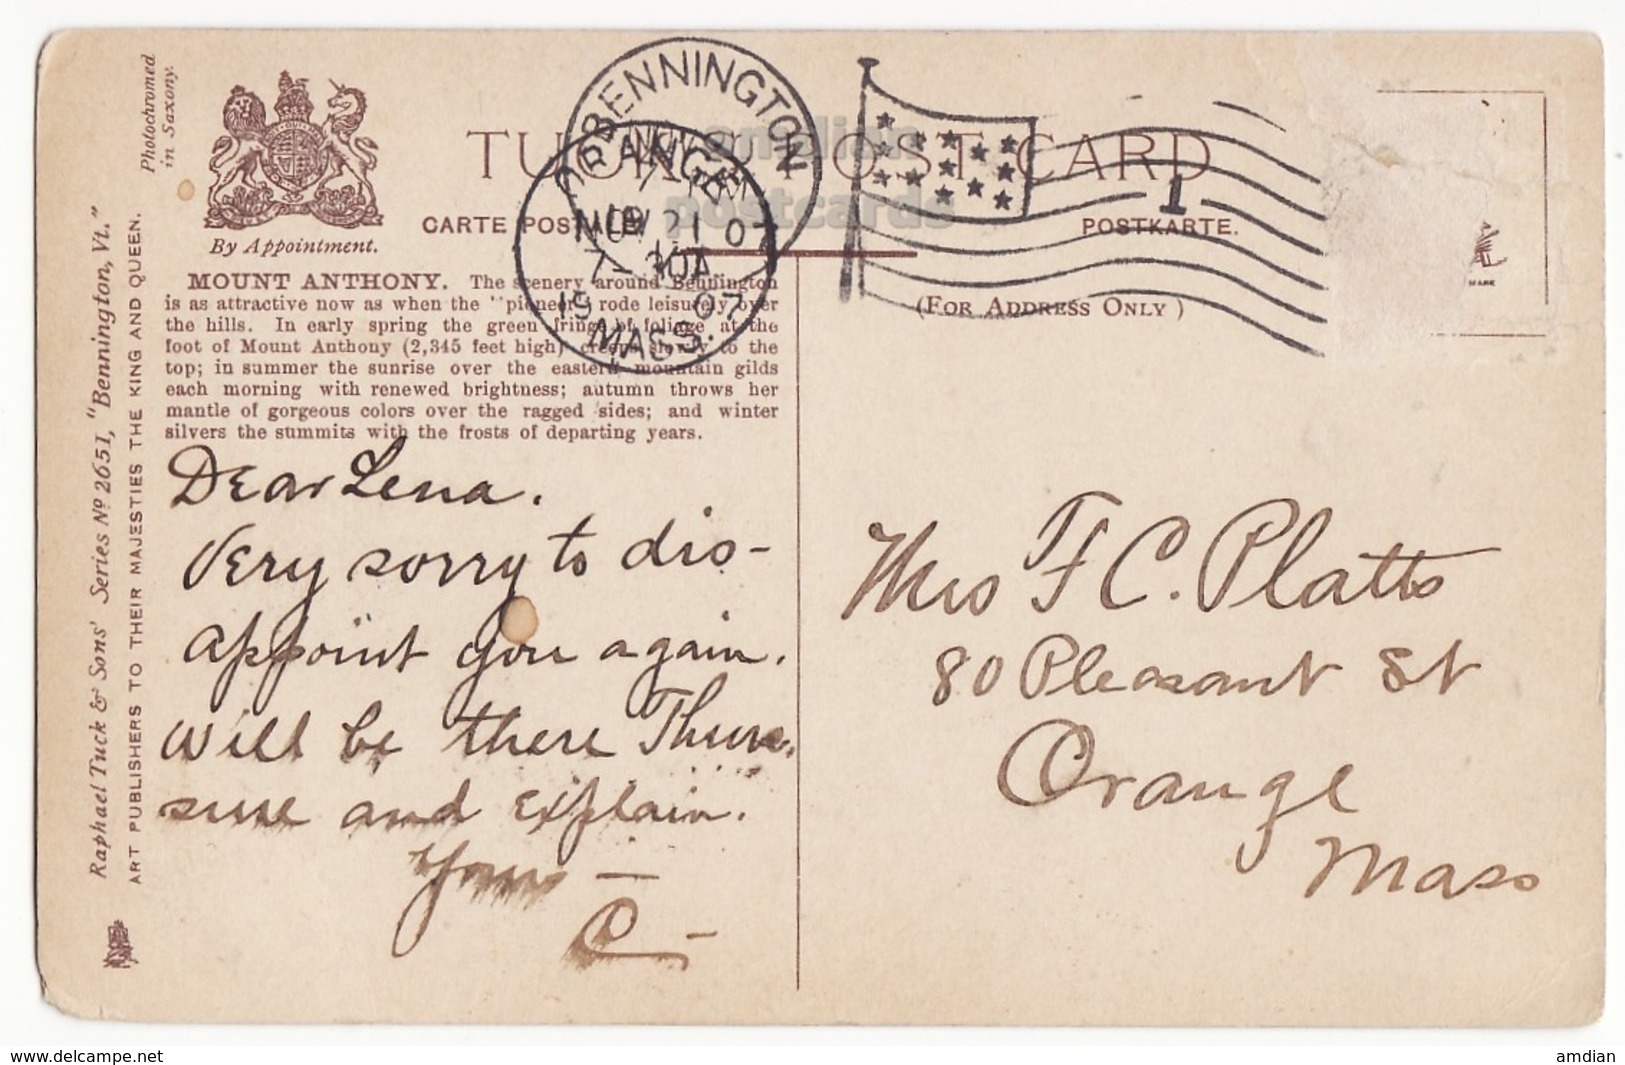 Photochromed
in Saxony.
By Appointment.
TUCK'S POST CARD
CARTE POSTALE
POSTKARTE.
(FOR ADDRESS ONLY)
BENNINGTON
ORANGE
NOV 21 07
7-30A
1907
MASS.
1
MARK
amdian's
postcards
Raphael Tuck & Sons' Series Nº 2651, "Bennington, Vt."
ART PUBLISHERS TO THEIR MAJESTIES THE KING AND QUEEN.
MOUNT ANTHONY. The scenery around Bennington
is as attractive now as when the "pioneers rode leisurely over
the hills. In early spring the green fringe of foliage at the
foot of Mount Anthony (2,345 feet high) creeps slowly to the
top; in summer the sunrise over the eastern mountain gilds
each morning with renewed brightness; autumn throws her
mantle of gorgeous colors over the ragged sides; and winter
silvers the summits with the frosts of departing years.
Dear Lena.
Very sorry to dis-
appoint you again.
Will be there Thurs.
sure and explain.
Yours —
C —
Mrs F C. Platts
80 Pleasant St
Orange
Mass
www.delcampe.net
amdian